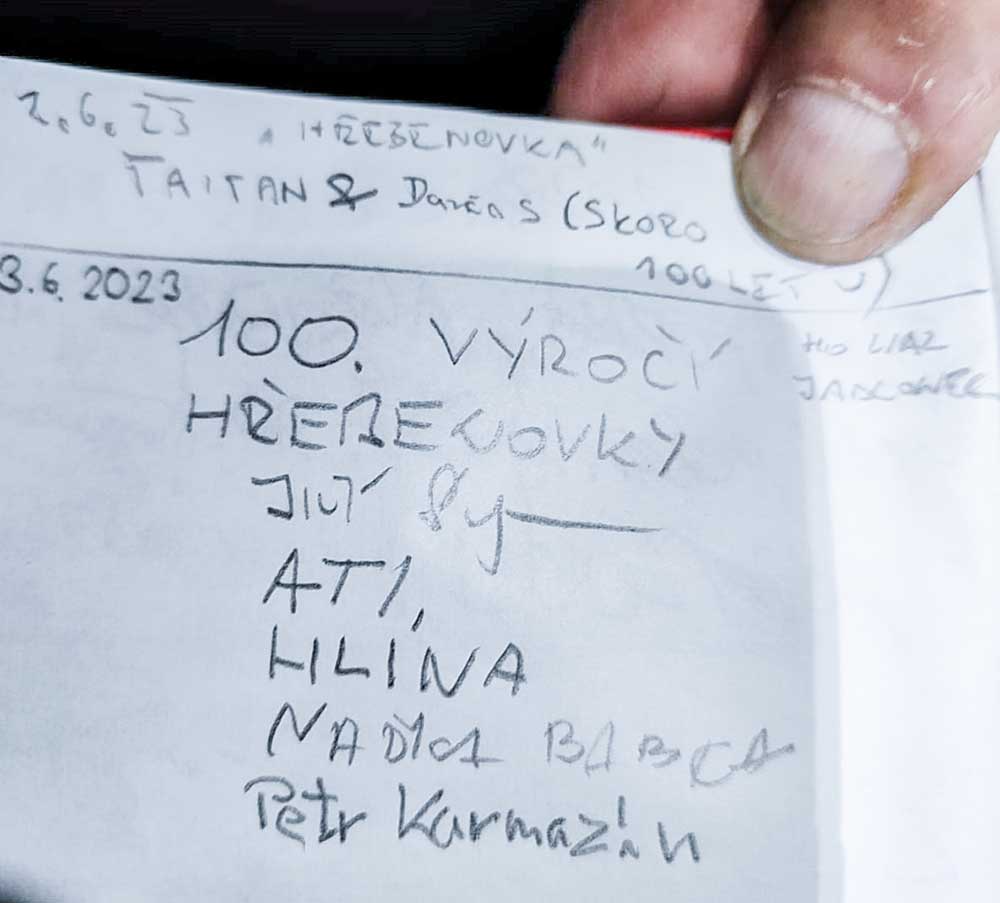 2.6.23 „HŘEBENOVKA"
TAITAN & Darča S (SKORO
100 LET
3.6.2023
100. VÝROČÍ
HO LIAZ
HŘEBENOVKY
ATI,
HLÍNA
BABCA
Petr Karmazín